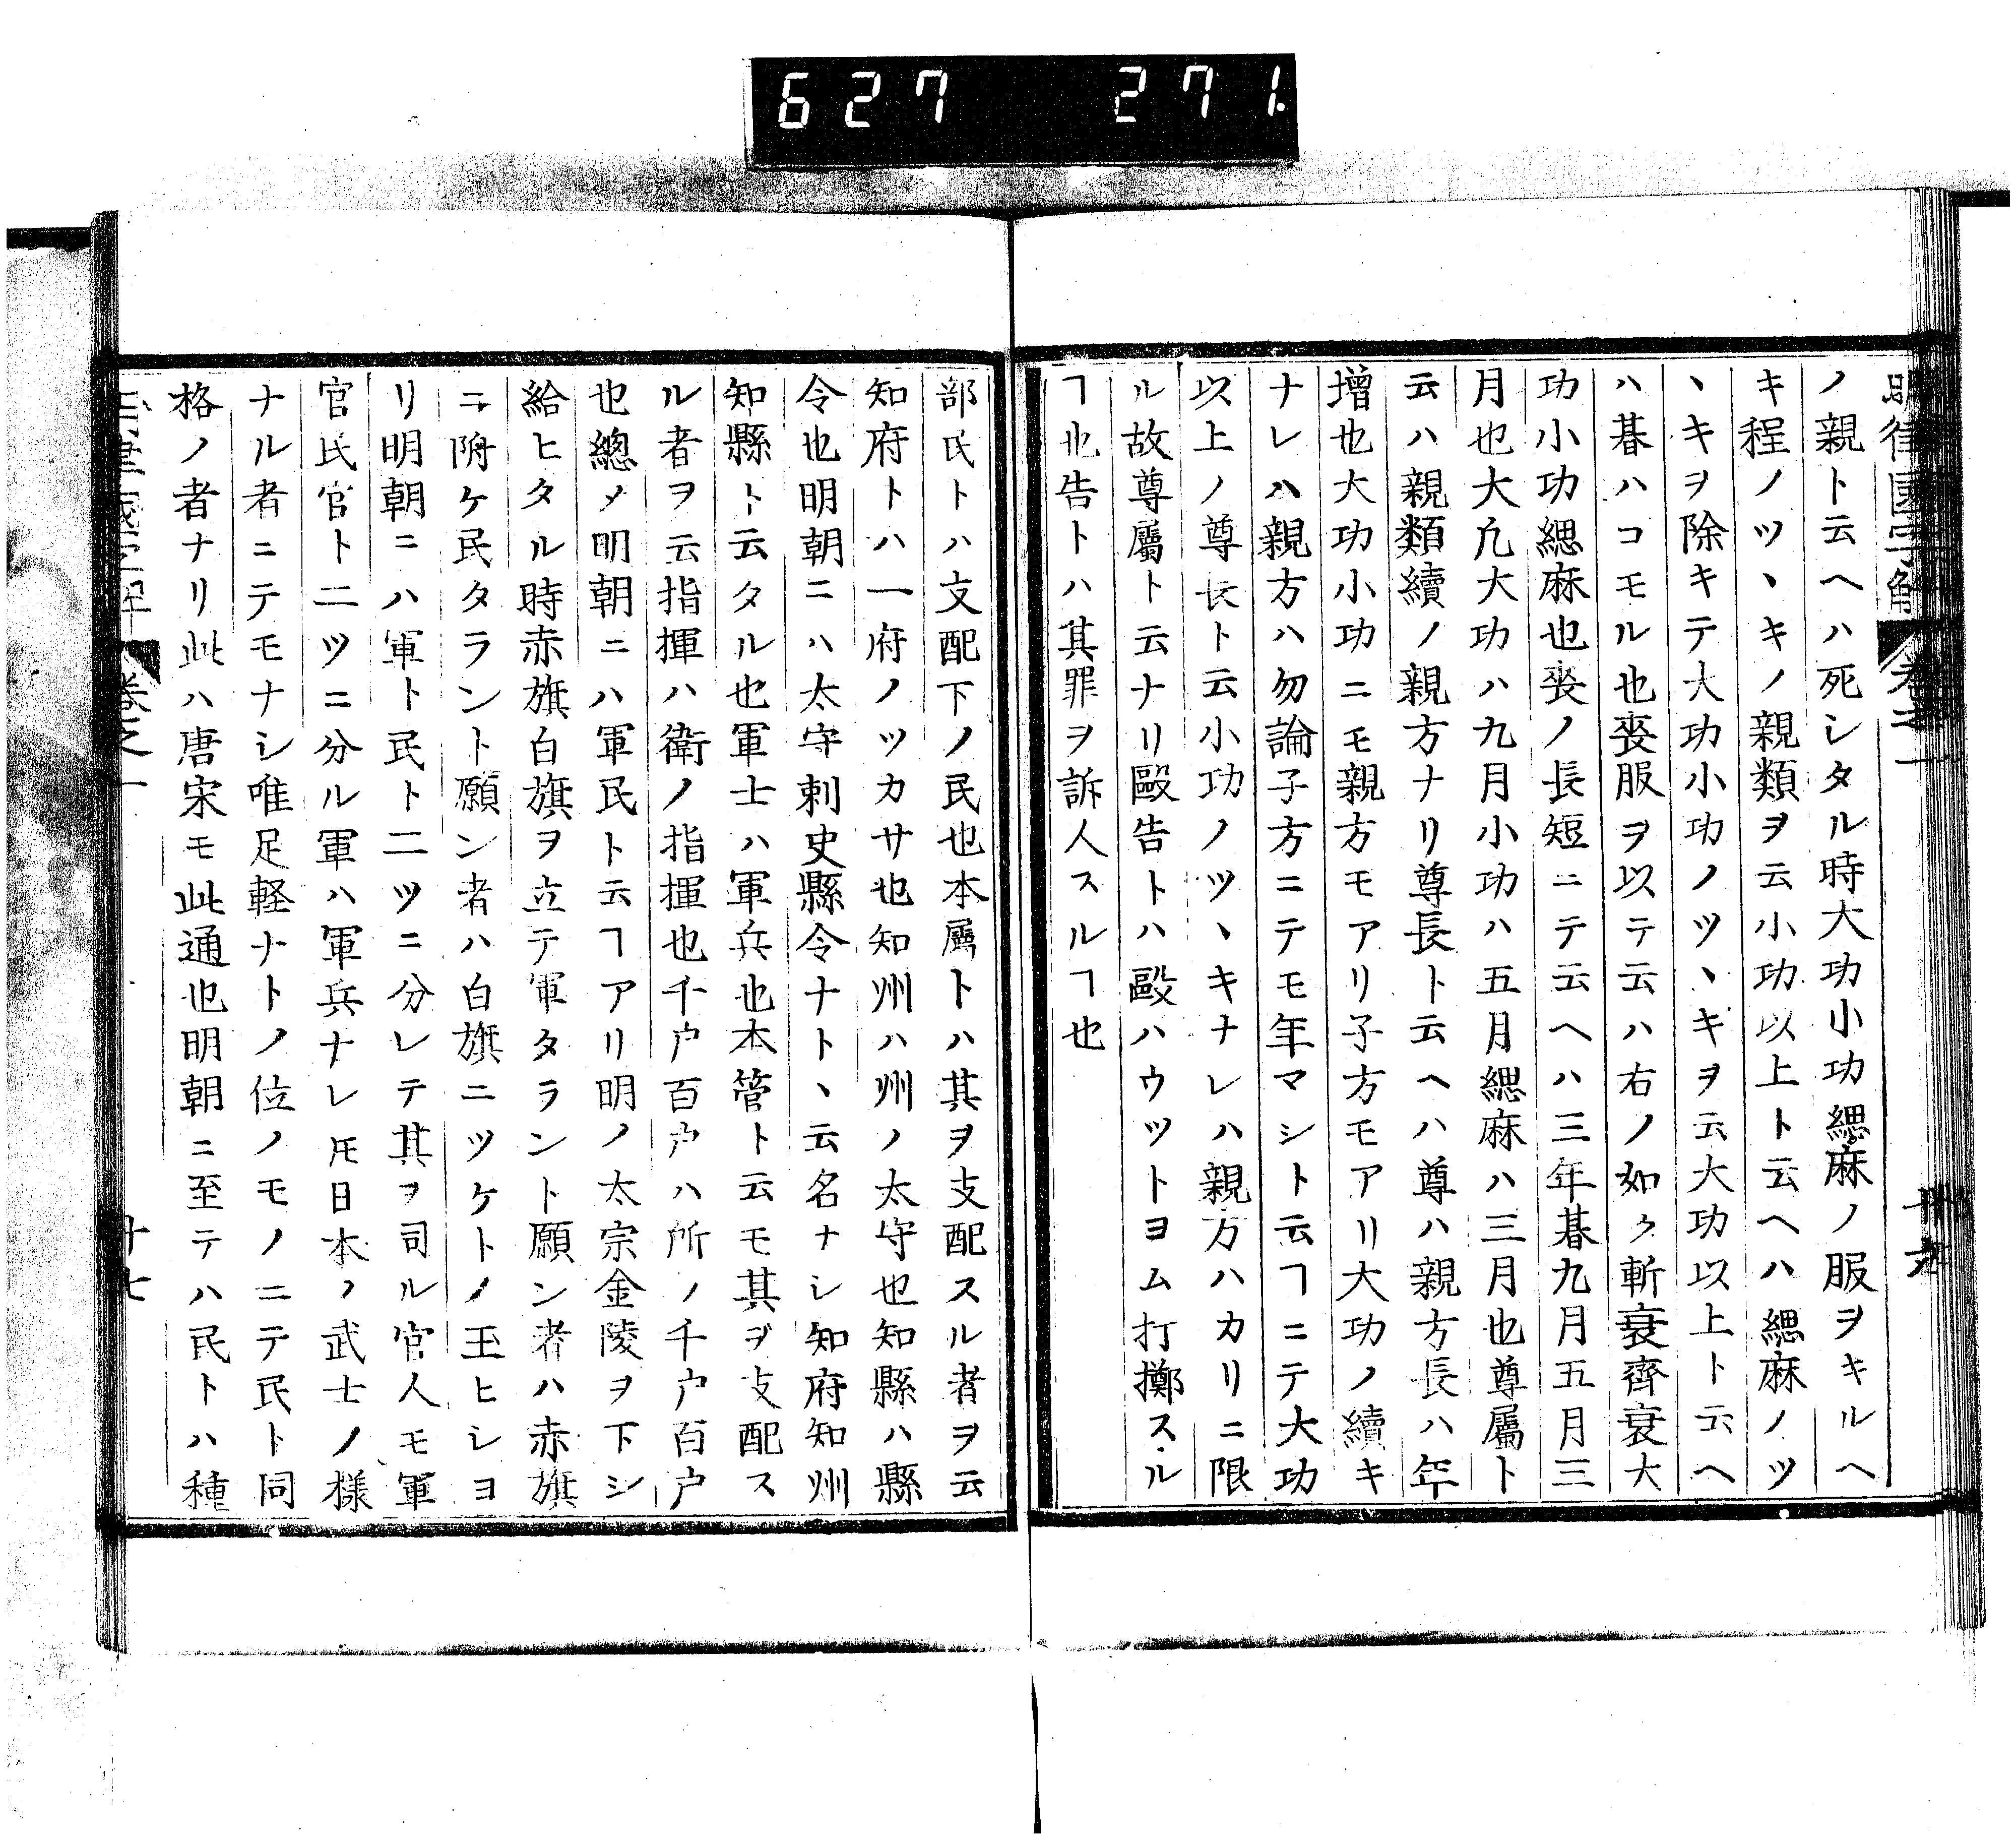 627 271
明律國字解 卷之一
ノ親ト云ヘハ死シタル時大功小功緦麻ノ服ヲキルヘ
キ程ノツヽキノ親類ヲ云小功以上ト云ヘハ緦麻ノツ
ヽキヲ除キテ大功小功ノツヽキヲ云大功以上ト云ヘ
ハ朞ハコモル也喪服ヲ以テ云ハ右ノ如ク斬衰齊衰大
功小功緦麻也喪ノ長短ニテ云ヘハ三年朞九月五月三
月也大凢大功ハ九月小功ハ五月緦麻ハ三月也尊屬ト
云ハ親類續ノ親方ナリ尊長ト云ヘハ尊ハ親方長ハ年
增也大功小功ニモ親方モアリ子方モアリ大功ノ續キ
ナレハ親方ハ勿論子方ニテモ年マシト云ヿニテ大功
以上ノ尊長ト云小功ノツヽキナレハ親方ハカリニ限
ル故尊屬ト云ナリ毆告トハ毆ハウツトヨム打擲スル
ヿ也告トハ其罪ヲ訴人スルヿ也
部民トハ支配下ノ民也本屬トハ其ヲ支配スル者ヲ云
知府トハ一府ノツカサ也知州ハ州ノ太守也知縣ハ縣
令也明朝ニハ太守刺史縣令ナトヽ云名ナシ知府知州
知縣ト云タル也軍士ハ軍兵也本管ト云モ其ヲ支配ス
ル者ヲ云指揮ハ衛ノ指揮也千户百户ハ所ノ千户百户
也總メ明朝ニハ軍民ト云ヿアリ明ノ太宗金陵ヲ下シ
給ヒタル時赤旗白旗ヲ立テ軍タラント願ン者ハ赤旗
ニ附ケ民タラント願ン者ハ白旗ニツケトノ玉ヒシヨ
リ明朝ニハ軍ト民ト二ツニ分レテ其ヲ司ル官人モ軍
官民官ト二ツニ分ル軍ハ軍兵ナレ𪜈日本ノ武士ノ樣
ナル者ニテモナシ唯足軽ナトノ位ノモノニテ民ト同
格ノ者ナリ此ハ唐宋モ此通也明朝ニ至テハ民トハ種
卷之一 十七